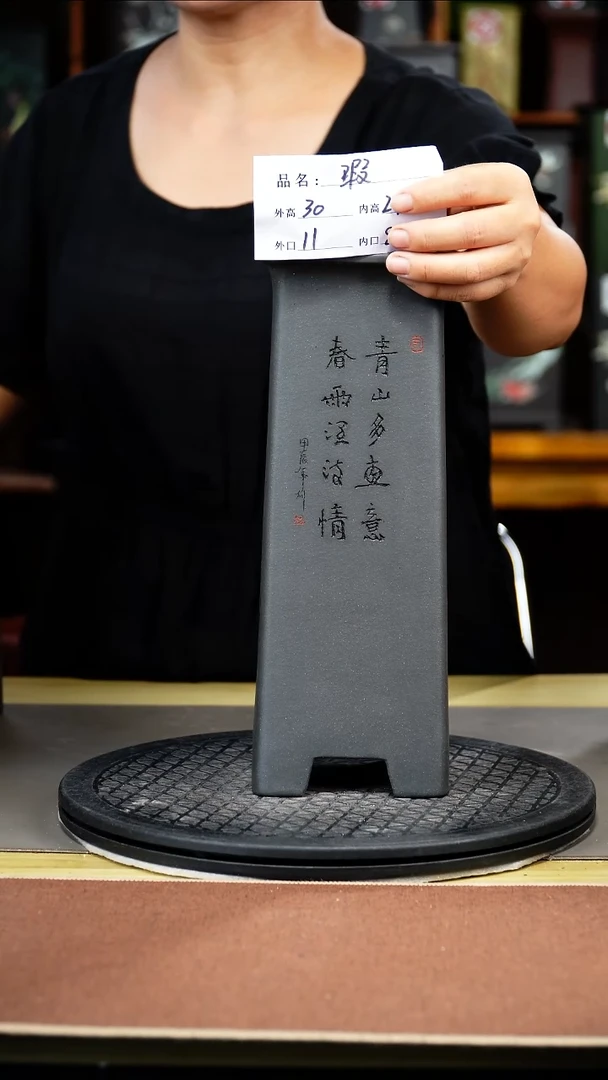 品名：瑕
外高 30 内高 2
外口 11 内口
青山多画意
春雨润诗情
甲辰年